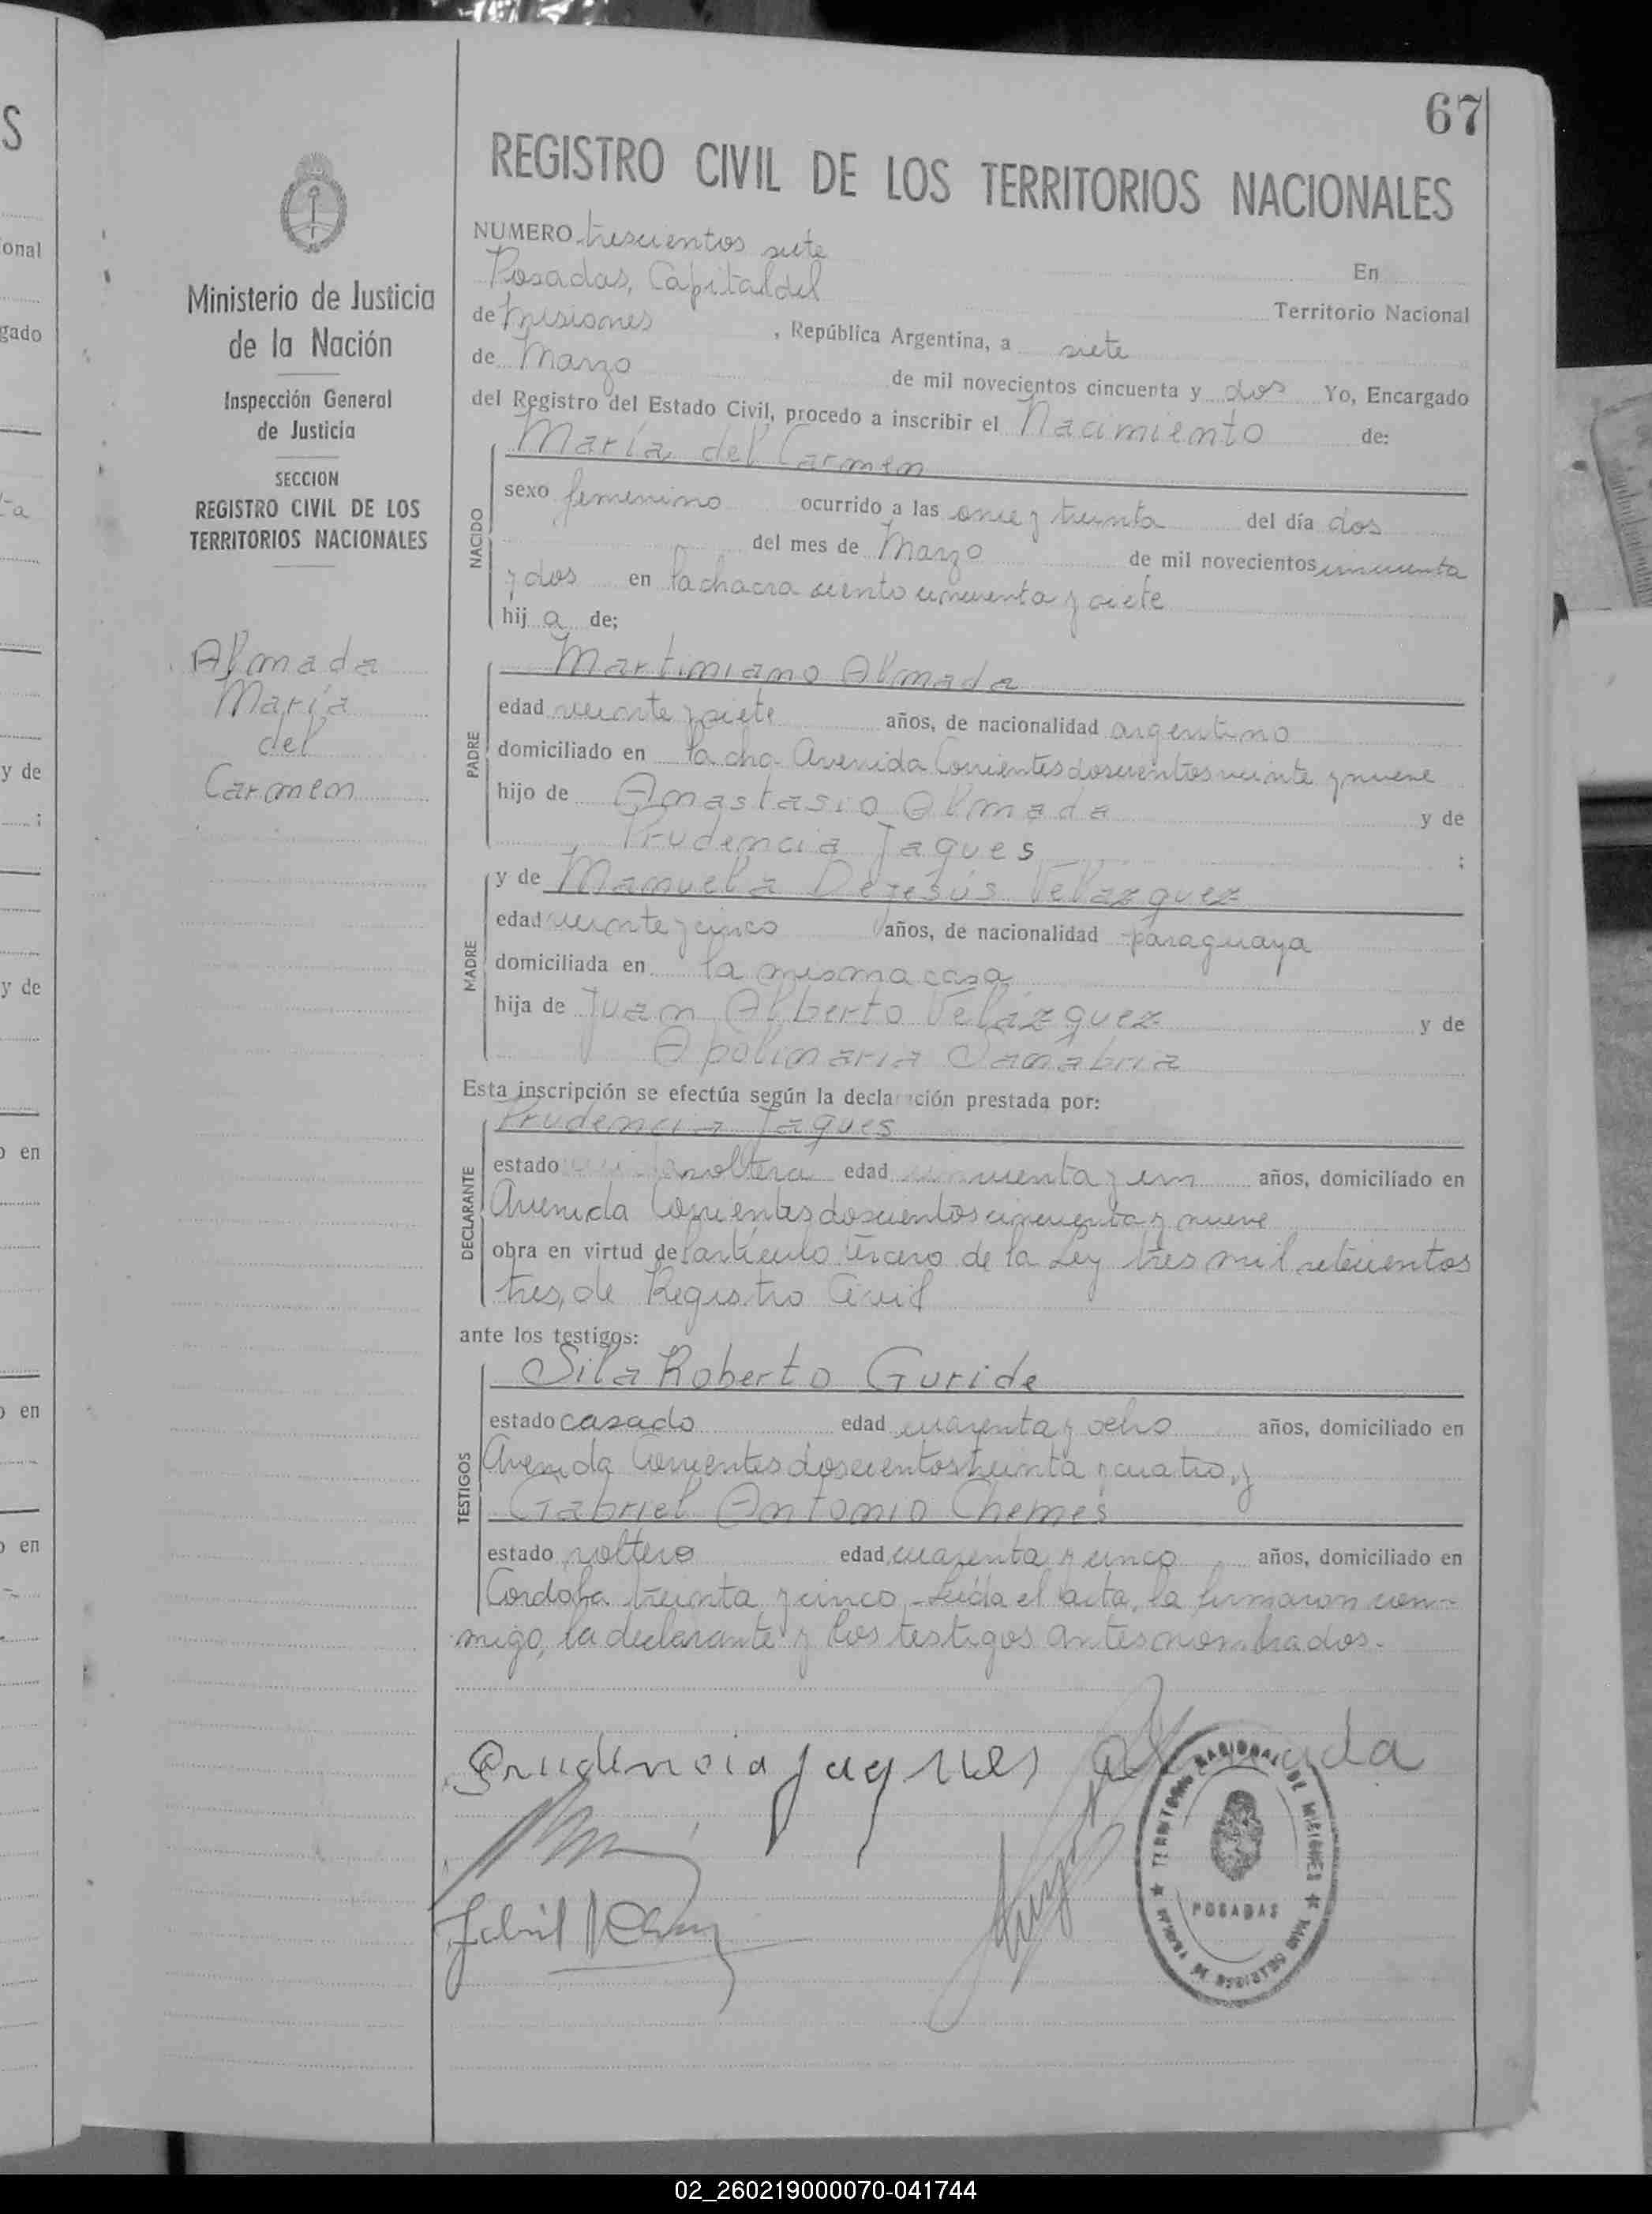 67
REGISTRO CIVIL DE LOS TERRITORIOS NACIONALES
Ministerio de Justicia
de la Nación
Inspección General
de Justicia
SECCION
REGISTRO CIVIL DE LOS
TERRITORIOS NACIONALES
Almada
María
del
Carmen
NUMERO trescientos siete
En
Posadas, Capital del
Territorio Nacional
de Misiones, República Argentina, a siete
de Marzo de mil novecientos cincuenta y dos Yo, Encargado
del Registro del Estado Civil, procedo a inscribir el Nacimiento de:
NACIDO
María del Carmen
sexo femenino ocurrido a las once y treinta del día dos
del mes de Marzo de mil novecientos cincuenta
y dos en la chacra ciento cincuenta y siete
hij a de;
PADRE
Martiniano Almada
edad veinte y siete años, de nacionalidad argentino
domiciliado en la cha. Avenida Corrientes doscientos veinte y nueve
hijo de Anastasio Almada y de
Prudencia Jaques ;
MADRE
y de Manuela Dejesús Velázquez
edad veinte y cinco años, de nacionalidad paraguaya
domiciliada en la misma casa
hija de Juan Alberto Velázquez y de
Apolinaria Sanabria
Esta inscripción se efectúa según la declaración prestada por:
DECLARANTE
Prudencia Jaques
estado soltera edad cincuenta y un años, domiciliado en
Avenida Corrientes doscientos cincuenta y nueve
obra en virtud del artículo tercero de la Ley tres mil setecientos
tres, de Registro Civil
ante los testigos:
TESTIGOS
Sila Roberto Guride
estado casado edad cuarenta y ocho años, domiciliado en
Avenida Corrientes doscientos treinta y cuatro, y
Gabriel Antonio Chemes
estado soltero edad cuarenta y cinco, años, domiciliado en
Cordoba treinta y cinco.- Leída el acta, la firmaron con-
migo, la declarante y los testigos antes nombrados.-
Prudencia Jaques Almada
TERRITORIO NACIONAL DE MISIONES
POSADAS
02_260219000070-041744